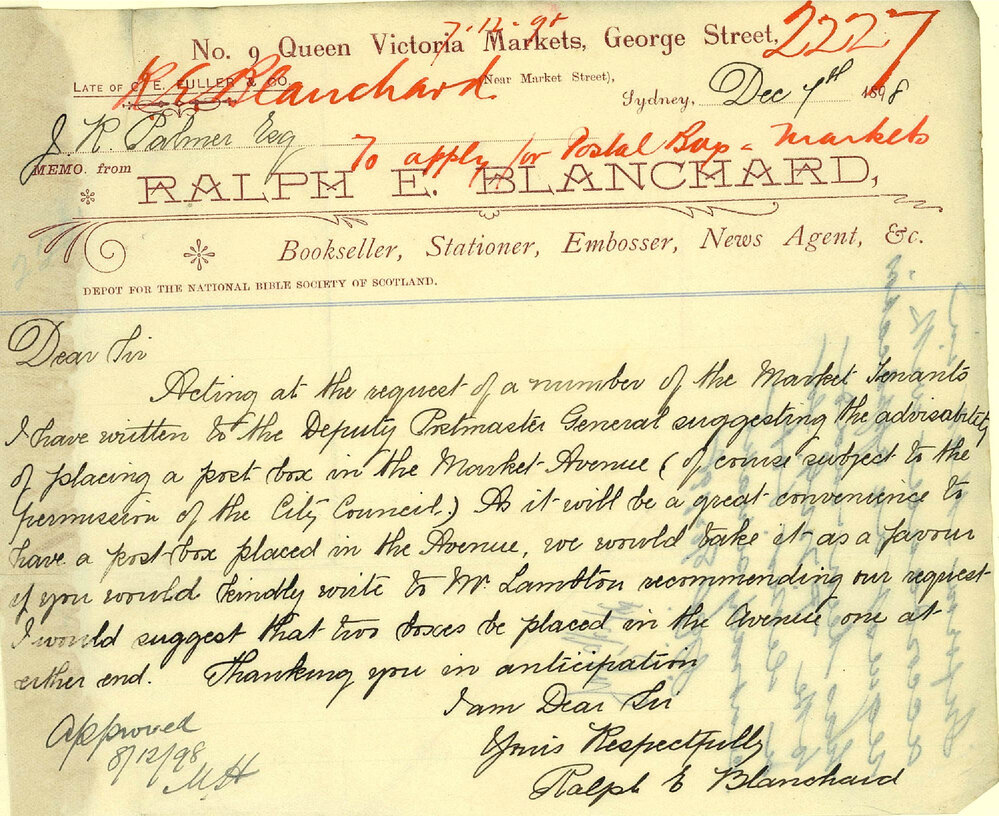 7-12-98
No. 9 Queen Victoria Markets, George Street,
2227
LATE OF C. E. FULLER & CO.
R E Blanchard
(Near Market Street),
Sydney, Dec 7th 1898
J. R. Palmer Esq
To apply for Postal Box - Markets
MEMO. from
RALPH E. BLANCHARD,
Bookseller, Stationer, Embosser, News Agent, &c.
DEPOT FOR THE NATIONAL BIBLE SOCIETY OF SCOTLAND.
Dear Sir
Acting at the request of a number of the Market Tenants
I have written to the Deputy Postmaster General suggesting the advisability
of placing a post box in the Market Avenue (of course subject to the
permission of the City Council.) As it will be a great convenience to
have a post box placed in the Avenue, we would take it as a favour
if you would kindly write to Mr Lambton recommending our request
I would suggest that two boxes be placed in the Avenue one at
either end. Thanking you in anticipation
I am Dear Sir
Yours Respectfully
Ralph E Blanchard
Approved
8/12/98